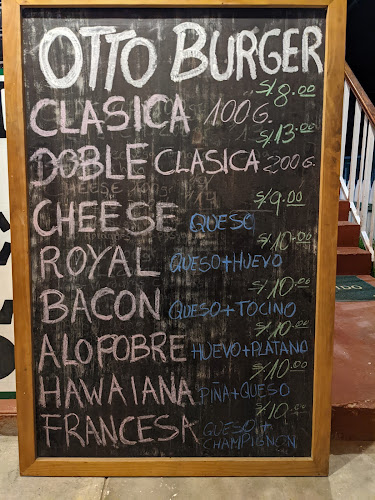 OTTO BURGER
S/8.00
CLASICA 100G.
S/13.00
DOBLE CLASICA 200G.
S/9.00
CHEESE QUESO
S/10.00
ROYAL QUESO+HUEVO
S/10.00
BACON QUESO+TOCINO
S/10.00
ALOPOBRE HUEVO+PLATANO
S/10.00
HAWAIANA PIÑA+QUESO
S/10.00
FRANCESA QUESO +
CHAMPIGNON